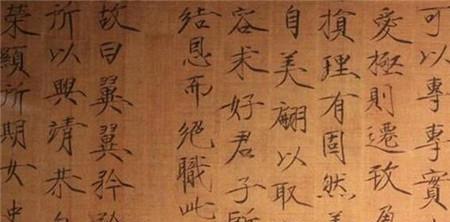 可以專專實
愛極則遷致盈
損理有固然美
自美翩以取
容求好君子所
結恩而絕職此
故曰翼翼矜矜
所以興靖恭自
榮顯所期女史